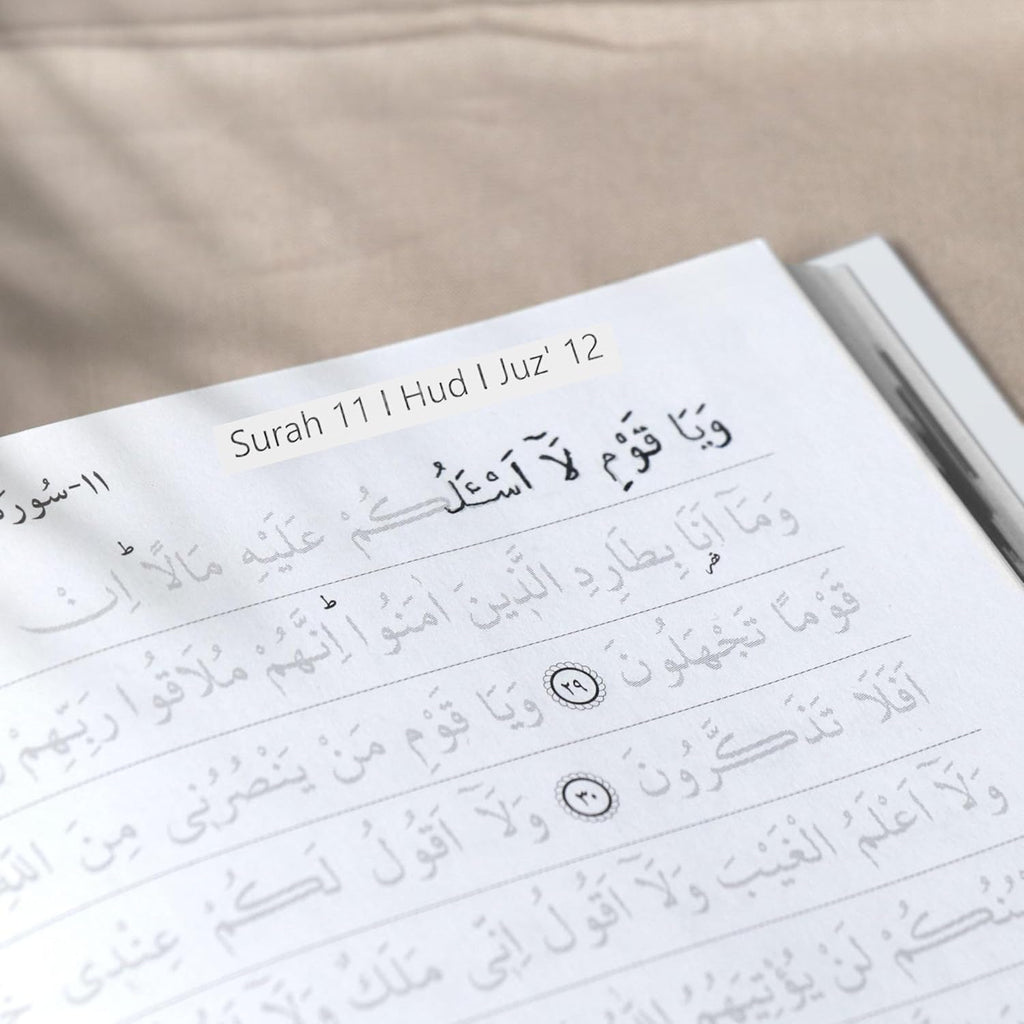 Surah 11 I Hud I Juz' 12
١١-سُورَة
وَيَا قَوْمِ لَآ اَسْـَٔلُكُمْ عَلَيْهِ مَالًا ۜ اِنْ
وَمَآ اَنَا بِطَارِدِ الَّذِينَ اٰمَنُوا ۜ اِنَّهُمْ مُلَاقُوا رَبِّهِمْ
قَوْمًا تَجْهَلُونَ ٢٩ وَيَا قَوْمِ مَنْ يَنْصُرُنِى مِنَ اللّٰهِ
اَفَلَا تَذَكَّرُونَ ٣٠ وَلَآ اَقُولُ لَكُمْ عِنْدِى
وَلَآ اَعْلَمُ الْغَيْبَ وَلَآ اَقُولُ اِنِّى مَلَكٌ وَلَآ
لَنْ يُؤْتِيَهُمُ اللّٰهُ